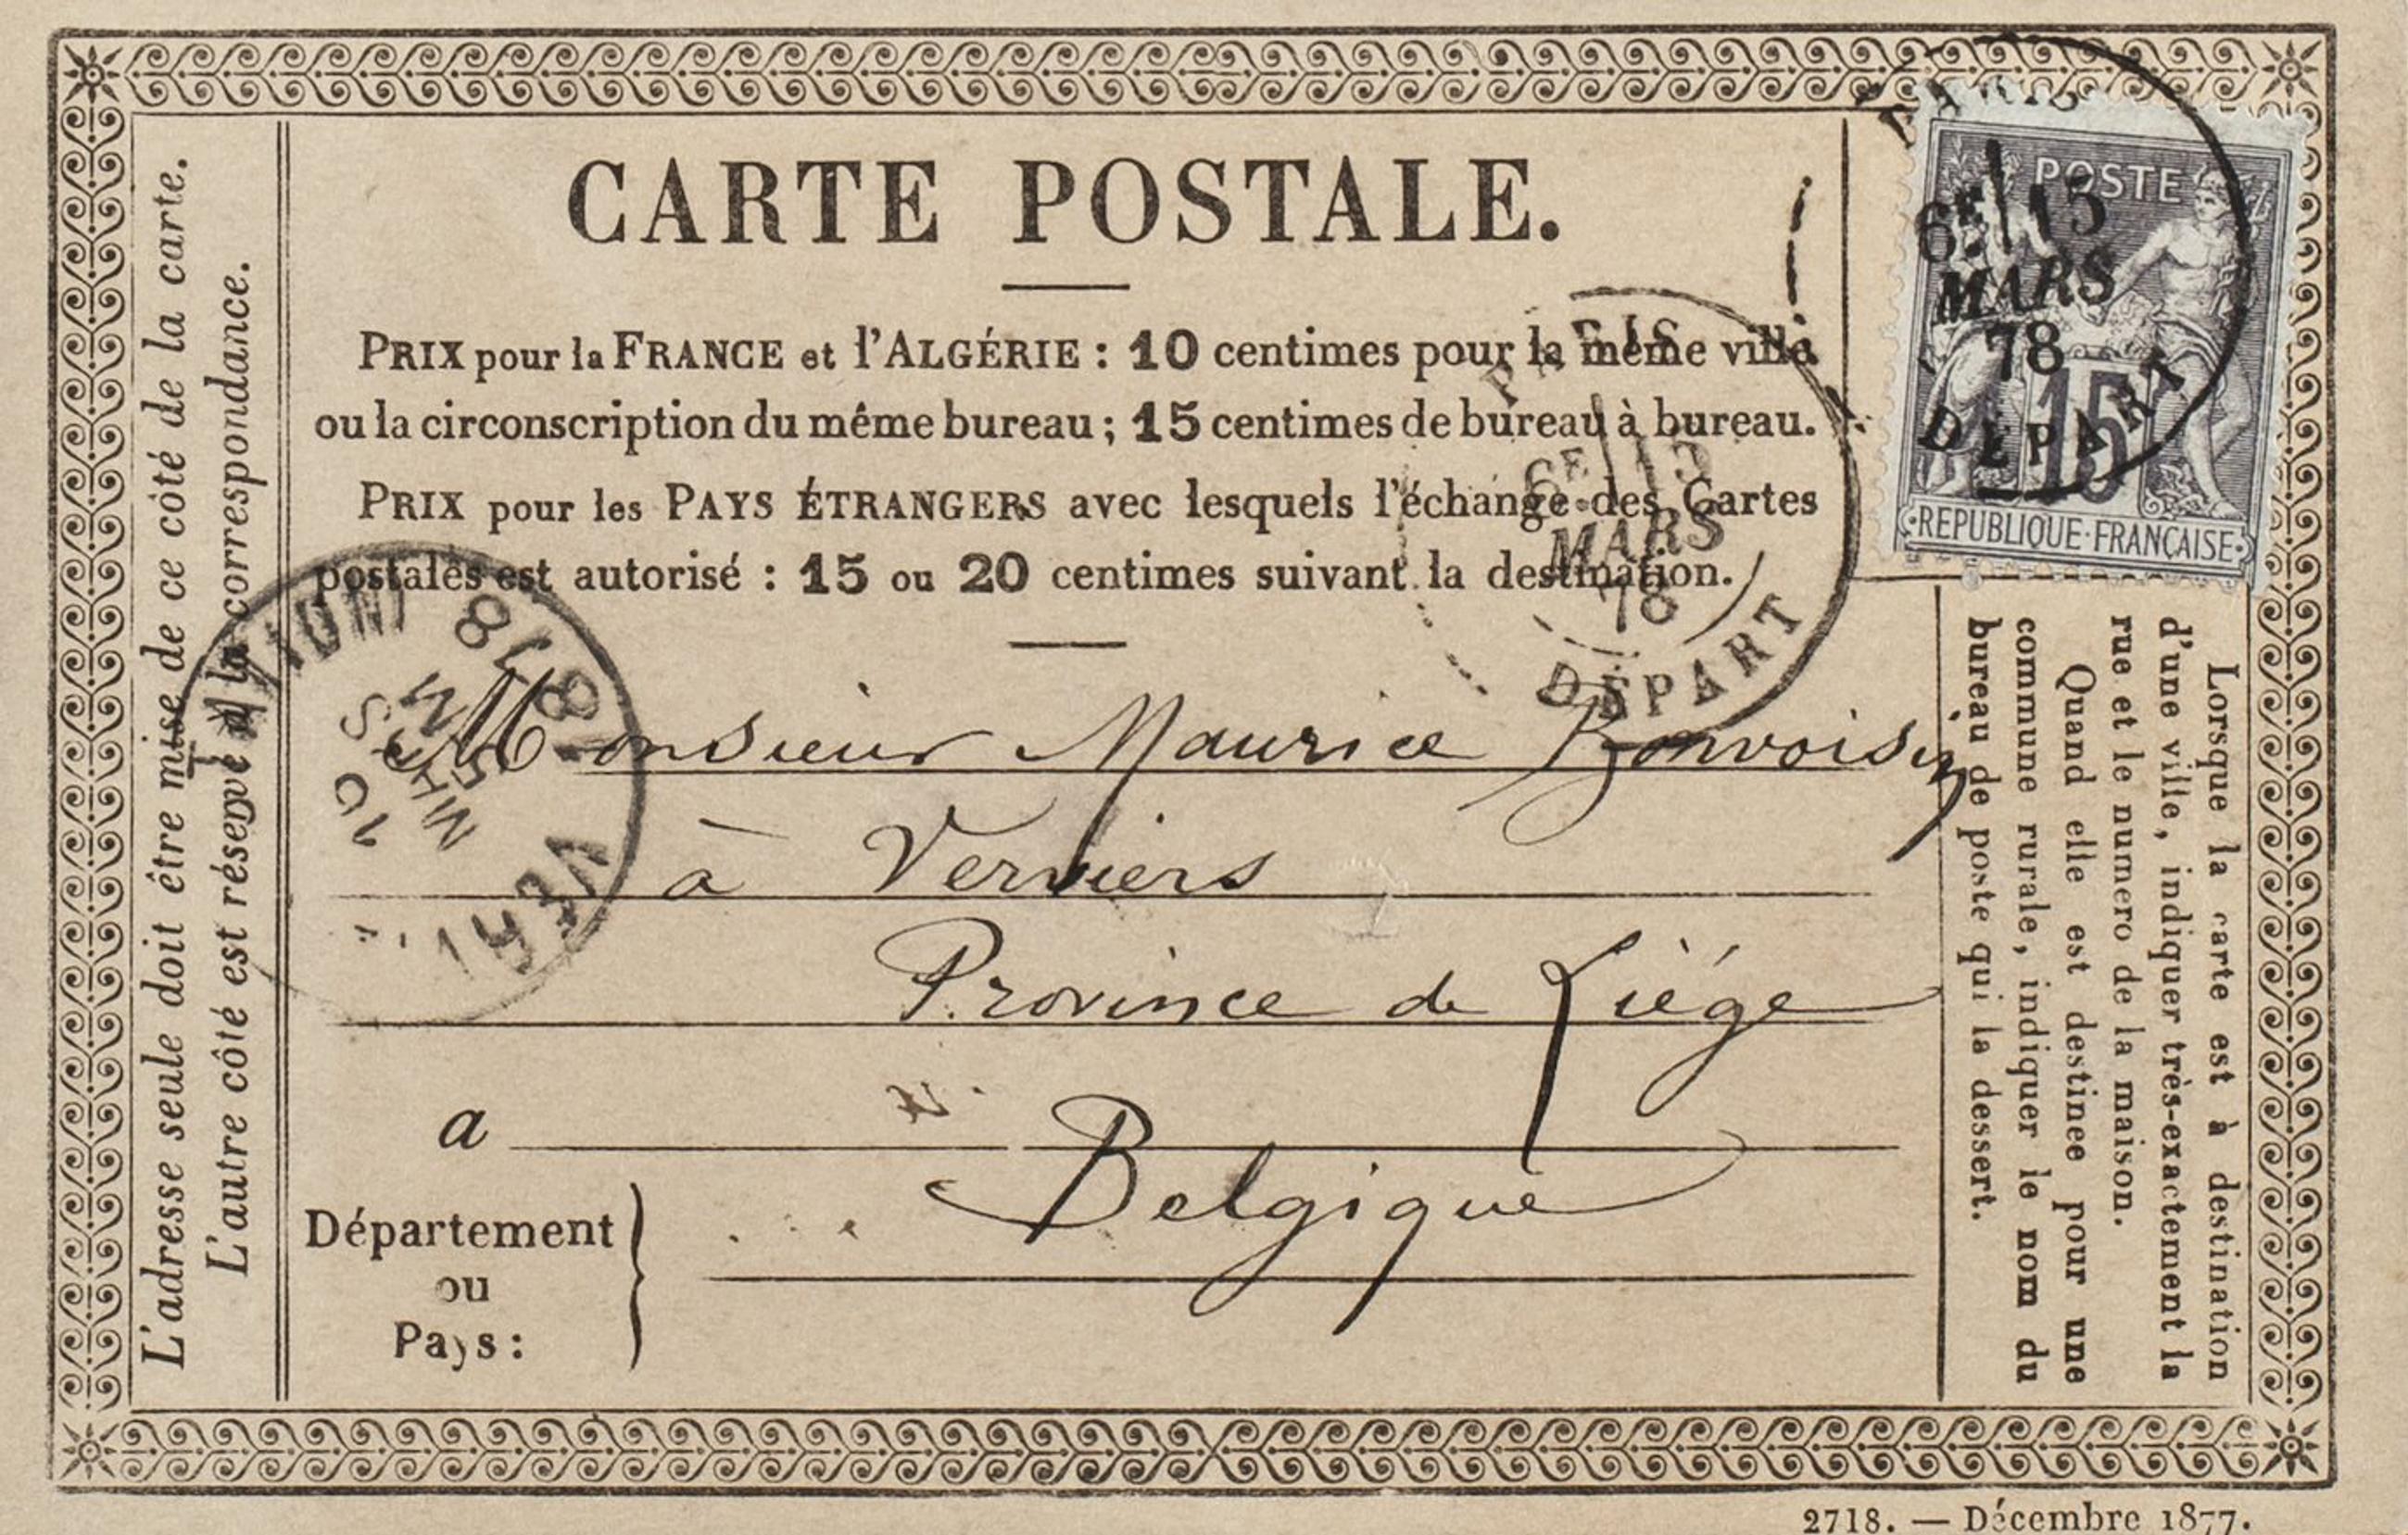 CARTE POSTALE.
PRIX pour la FRANCE et l'ALGÉRIE : 10 centimes pour la même ville
ou la circonscription du même bureau ; 15 centimes de bureau à bureau.
PRIX pour les PAYS ÉTRANGERS avec lesquels l'échange des Cartes
postales est autorisé : 15 ou 20 centimes suivant la destination.
L'adresse seule doit être mise de ce côté de la carte.
L'autre côté est réservé à la correspondance.
PARIS
6E 15
MARS
78
DÉPART
POSTE
15
REPUBLIQUE FRANÇAISE
PARIS
6E 15
MARS
78
DÉPART
1878
Monsieur Maurice Bonvoisin
à Verviers
Province de Liége
a
Belgique
Département
ou
Pays :
Lorsque la carte est à destination
d'une ville, indiquer très-exactement la
rue et le numero de la maison.
Quand elle est destinee pour une
commune rurale, indiquer le nom du
bureau de poste qui la dessert.
2718. — Décembre 1877.